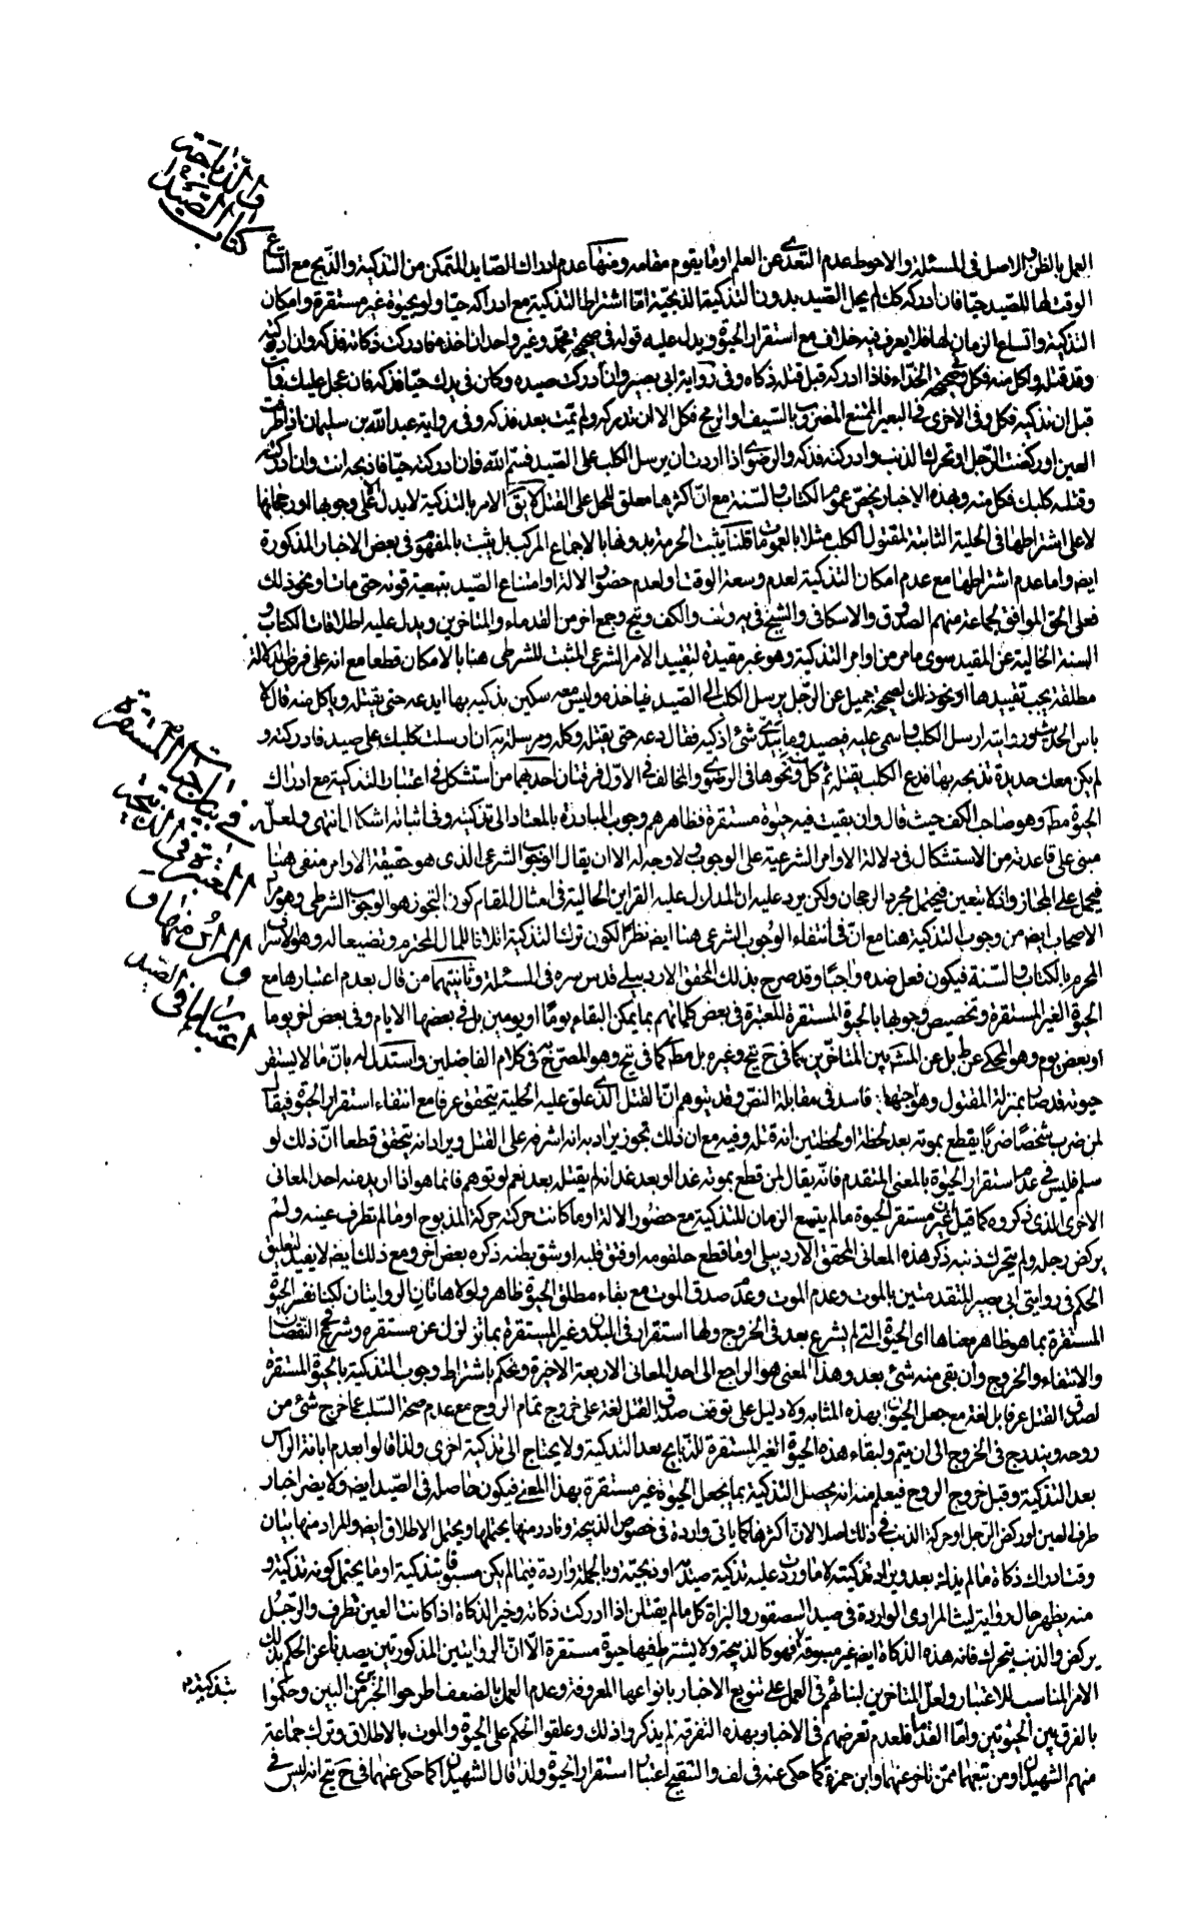 والذباحة
كتاب الصيد
العمل بالظن والاصل فى المسئلة والاحوط عدم التعدى عن العلم او ما يقوم مقامه ومنها عدم ادراك الصايد للتمكن من التذكية والذبح مع اتساع
الوقت لها للصيد حيا فان ادركه كك لم يحل الصيد بدون التذكية الذبحية اما اشتراط التذكية مع ادراكه حيا ولو بحيوة غير مستقرة وامكان
التذكية واتساع الزمان لها فلا يعرف فيه خلاف مع استقرار الحيوة ويدل عليه قوله فى صحيحة محمد وغير واحد ان اخذه فادركت ذكاته فذكه وان ادركته
وقد قتله واكل منه فكل وصحيحة الحذاء فاذا ادركه قبل قتله ذكاه وفى رواية ابى بصير وان ادركت صيده وكان فى يدك حيا فذكه فان عجل عليك فمات
قبل ان تذكيه فكل وفى الاخرى فى البعير الممتنع المضروب بالسيف او الرمح فكل الا ان تدركه ولم يمت بعد فذكه وفى رواية عبد الله بن سليمان اذا طرفت
العين او ركضت الرجل او تحرك الذنب وادركته فذكه والرضوى اذا اردت ان يرسل الكلب على الصيد فسم الله فان ادركته حيا فاذبحه انت وان ادركته
وقتله كلبك فكل منه وبهذه الاخبار يخص عموم الكتاب والسنة مع ان اكثرها معلق للحل على القتل لا يق الامر بالتذكية لا يدل الا على وجوبها او رجحانها
لا على اشتراطها فى الحلية الثابتة لمقتول الكلب مثلا بالعمومات قلنا يثبت الحرمة بدونها بالاجماع المركب بل يثبت بالمفهوم فى بعض الاخبار المذكورة
ايضا واما عدم اشتراطها مع عدم امكان التذكية لعدم وسعة الوقت او لعدم حضور الالة او امتناع الصيد ببقية قوته حتى مات او نحو ذلك
فعلى الحق الموافق لجماعة منهم الصدوق والاسكافى والشيخ فى يه ولف والكف وتيح وجمع اخر من القدماء والمتاخرين ويدل عليه اطلاقات الكتاب و
السنة الخالية عن المقيد سوى ما مر من اوامر التذكية وهو غير مقيد لتقييد الامر الشرعى المثبت للشرطى هنا بالامكان قطعا مع انه على فرض الدلالة
مطلقة يجب تقييدها او نحو ذلك لصحيحة جميل عن الرجل يرسل الكلب الى الصيد فياخذه وليس معه سكين يذكيه بها ايدعه حتى يقتله وياكل منه قال لا
باس الحديث وروايته ارسل الكلب واسمى عليه فيصيد وما بيدى شئ اذكيه فقال دعه حتى يقتله وكله ومرسلة يه ان ارسلت كلبك على صيد فادركته و
لم يكن معك حديدة تذبحه بها فدع الكلب يقتله ثم كل ونحوها فى الرضوى والمخالف فى الاول فرقتان احديهما من استشكل فى اعتبار التذكية مع ادراك
الحيوة مط وهو صاحب الكف حيث قال وان بقيت فيه حيوة مستقرة فظاهرهم وجوب المبادرة بالمعتاد الى تذكيته وفى اثباته اشكال انتهى ولعله
مبنى على قاعدته من الاستشكال فى دلالة الاوامر الشرعية على الوجوب ولا وجه له الا ان يقال الوجوب الشرعى الذى هو حقيقة الاوامر منفى هنا
فيحمل على المجاز واذ لا يتعين فيحتمل مجرد الرجحان ولكن يرد عليه ان المدلول عليه القراين الحالية فى امثال المقام كون التجوز هو الوجوب الشرطى وهو مراد
الاصحاب ايضا من وجوب التذكية هنا مع ان فى انتفاء الوجوب الشرعى هنا ايضا نظرا لكون ترك التذكية اتلافا للمال المحترم وتضييعا له وهو الاسراف
المحرم بالكتاب والسنة فيكون فعل ضده واجبا وقد صرح بذلك المحقق الاردبيلى قدس سره فى المسئلة وثانيتهما من قال بعدم اعتبارها مع
الحيوة الغير المستقرة وتخصيص وجوبها بالحيوة المستقرة المعتبرة فى بعض كلماتهم بما يمكن البقاء يوما او يومين بل فى بعضها الايام وفى بعض اخر يوما
او بعض يوم وهو المحكى عن ط بل عن المش بين المتاخرين كما فى ح تيح وغيره بل مط كما فى تيح وهو المصرح به فى كلام الفاضلين واستدل له بان ما لا يستقر
حيوته قد صار بمنزلة المقتول وهو اجتهاد فاسد فى مقابلة النص وقد يتوهم ان القتل الذى علق عليه الحلية يتحقق عرفا مع انتفاء استقرار الحيوة فيقال
لمن ضرب شخصا ضربا يقطع بموته بعد لحظة او لحظتين انه قتله وفيه مع ان ذلك تجوز يراد به انه اشرفه على القتل ويراد انه يتحقق قطعا ان ذلك لو
سلم فليس فى عدم استقرار الحيوة بالمعنى المتقدم فانه يقال لمن قطع بموته غدا او بعد غد انه لم يقتله بعد نعم لو توهم فانما هو اذا اريد منه احد المعانى
الاخرى الذى ذكروه كما قيل ان غير مستقر الحيوة ما لم يتسع الزمان للتذكية مع حضور الالة او ما كانت حركته حركة المذبوح او ما لم تطرف عينه ولم
يركض رجله ولم يتحرك ذنبه ذكر هذه المعانى المحقق الاردبيلى او ما قطع حلقومه او فتق قلبه او شق بطنه ذكره بعض اخر ومع ذلك ايضا لا يفيد لتعليق
الحكم فى روايتى ابى بصير المتقدمتين بالموت وعدم الموت وعدم صدق الموت مع بقاء مطلق الحيوة ظاهر ولولا هاتان الروايتان لكنا نفسر الحيوة
المستقرة بما هو ظاهر معناها اى الحيوة التى لم يشرع بعد فى الخروج ولها استقرار فى البدن وغير المستقرة بما تزلزل عن مستقره وشرع فى النقصان
والانتفاء والخروج وان بقى منه شئ بعد وهذا المعنى هو الراجع الى احد المعانى الاربعة الاخيرة ونحكم باشتراط وجوب التذكية بالحيوة المستقرة
لصدق القتل عرفا بل لغة مع جعل الحيوان بهذه المثابة ولا دليل على توقف صدق القتل لغة على خروج تمام الروح مع عدم صحة السلب عما خرج شئ من
روحه ويندرج فى الخروج الى ان يتم ولبقاء هذه الحيوة الغير المستقرة للذبايح بعد التذكية ولا يحتاج الى تذكية اخرى ولذا قالوا بعدم ابانة الراس
بعد التذكية وقبل خروج الروح فيعلم منه انه يحصل التذكية بما يجعل الحيوة غير مستقرة بهذا المعنى فيكون حاصله فى الصيد ايضا ولا يضر اخبار
طرف العين او ركض الرجل او حركة الذنب فى ذلك اصلا لان اكثرها كما ياتى واردة فى خصوص الذبيحة ونادر منها يحتملها ويحتمل الاطلاق ايضا والمراد منها بيان
وقت ادراك ذكاة ما لم يذك بعد ويراد تذكيته لا ما ورد عليه تذكية صيدية او ذبحية وبالجملة واردة فيما لم يكن مسبوقا بتذكية او ما يحتمل كونه تذكية و
منه يظهر حال رواية ليث المرادى الواردة فى صيد الصقور والبزاة كل ما لم يقتلن اذا ادركت ذكاته وخير الذكاة اذا كانت العين تطرف والرجل
يركض والذنب يتحرك فانه هذه الذكاة ايضا غير مسبوقة فهو كالذبيحة ولا يشترط فيها حيوة مستقرة الا ان الروايتين المذكورتين يصدنا عن الحكم بذلك
الامر المناسب للاعتبار ولعل المتاخرين لبنائهم فى العمل على تنويع الاخبار بانواعها المعروفة وعدم العمل بالضعاف طرحوا الخبرين من البين وحكموا
بالفرق بين الحيوتين واما القدماء فلعدم تعرضهم فى الاخبار بهذه التفرقة لم يذكروا ذلك وعلقوا الحكم على الحيوة والموت بالاطلاق وترك جماعة
منهم الشهيدان ومن تبعهما ممن تاخر عنهما وابن حمزة كما حكى عنه فى لف والتنقيح اعتبار استقرار الحيوة ولذا قال الشهيدان كما حكى عنهما فى ح تيح انه ليس فى
فى بيان حيات المستقرة
المعتبرة فى الذبيحة
والمراد منها و
اعتبارها فى الصيد
بتذكية م